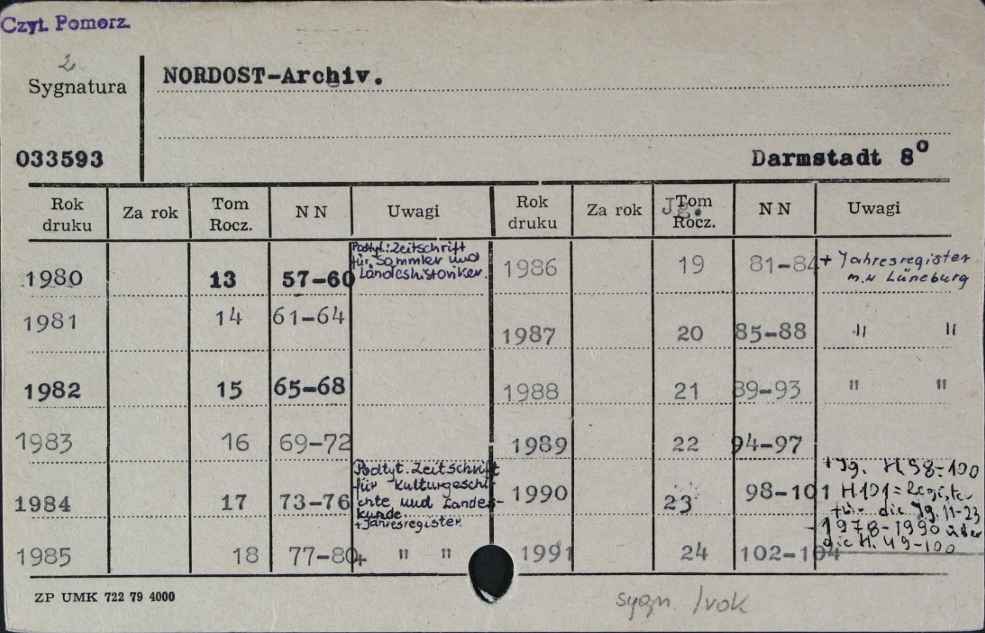 Czyt. Pomorz.
2
Sygnatura
NORDOST-Archiv.
033593
Darmstadt 8°
Rok druku Za rok Tom Rocz. NN Uwagi Rok druku Za rok Jg. Tom Rocz. NN Uwagi
1980 13 57-60 Podtyt.: Zeitschrift
für Sammler und
Landeshistoriker.
1986 19 81-84 + Jahresregister
m.N Lüneburg
1981 14 61-64
1987 20 85-88 " "
1982 15 65-68
1988 21 89-93 " "
1983 16 69-72
1989 22 94-97
1984 17 73-76 Podtyt. Zeitschrift
für Kulturgeschi-
chte und Landes-
kunde.
+ Jahresregister
1990 23 98-101 + Jg. H 98-100
H 101 = Register
für die Jg. 11-23
1978-1990 über
die H. 49-100
1985 18 77-80 + " "
1991 24 102-104
ZP UMK 722 79 4000
sygn. /rok